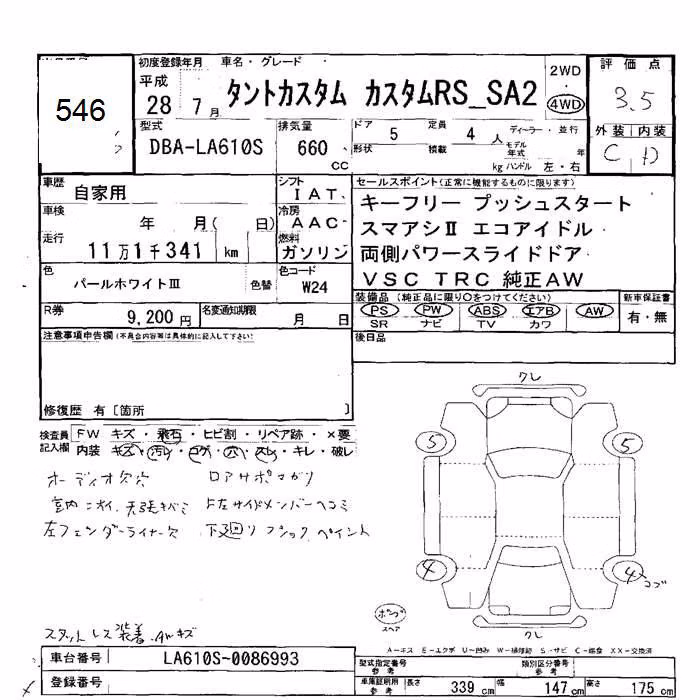 546
初度登録年月 車名・グレード
平成
28 7月 タントカスタム カスタムRS_SA2
2WD
・
4WD
評価点
3.5
外装 内装
C D
型式
DBA-LA610S
排気量
660
CC
ドア 5 定員 4 人 ディーラー・並行
形状 積載 kg モデル年式 年
ハンドル 左・右
車歴
自家用
シフト
IAT
車検
年 月( 日)
冷房
AAC
走行
11万1千341 km
燃料
ガソリン
色
パールホワイトⅢ 色替
色コード
W24
R券
9,200円
名変通知期限
月 日
セールスポイント(正常に機能するものに限ります)
キーフリー プッシュスタート
スマアシⅡ エコアイドル
両側パワースライドドア
VSC TRC 純正AW
装備品 (純正品に限り○をつけてください)
PS PW ABS エアB AW
SR ナビ TV カワ
新車保証書
有・無
後日品
注意事項申告欄(不具合内容等は具体的に記入して下さい)
修復歴 有〔箇所 〕
検査員
記入欄
FW キズ・飛石・ヒビ割・リペア跡・×要
内装 キズ・汚レ・コゲ・穴・スレ・キレ・破レ
オーディオ欠穴 ロアサポマガリ
室内ニオイ、天張キバミ F左サイドメンバーヘコミ
左フェンダーライナー欠 下廻リ ブラックペイント
スタットレス装着 AWキズ
クレ
5 5
4 4 コブ
クレ
スペア
A-キズ E-エクボ U-凹み W-補修跡 S-サビ C-腐食 XX-交換済
車台番号 LA610S-0086993
登録番号
型式指定番号
参考
類別区分番号
参考
車庫証明用
参考
長さ 339 cm 幅 147 cm 高さ 175 cm